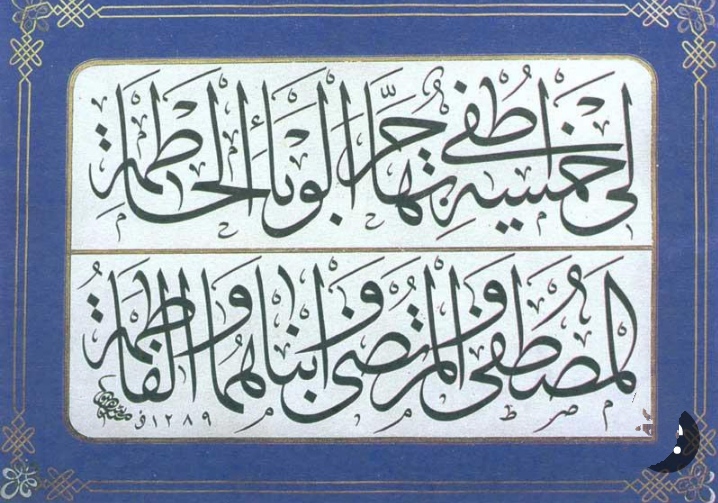 لى خمسة اطفى بها حر الوباء الحاطمة
المصطفى و المرتضى و ابناهما و الفاطمة
١٢٨٩